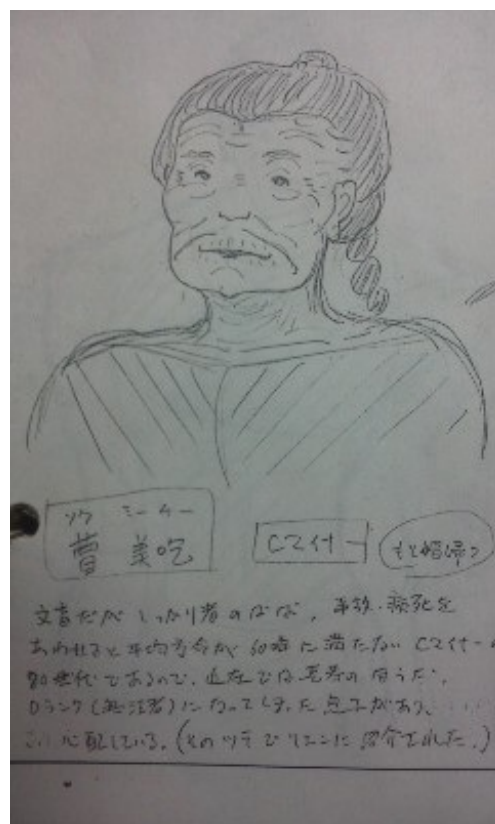 ソウ ミーケー
曹 美吃
Cマイナー
文盲だが しっかり者のばば。事故・病死を
あわせると平均寿命が60歳に満たない Cマイナー
80世代であるので、近在では長寿のほうだ。
Dランク(無法者)になってしまった息子があり、
心配している。(そのツテでリュンに紹介された。)